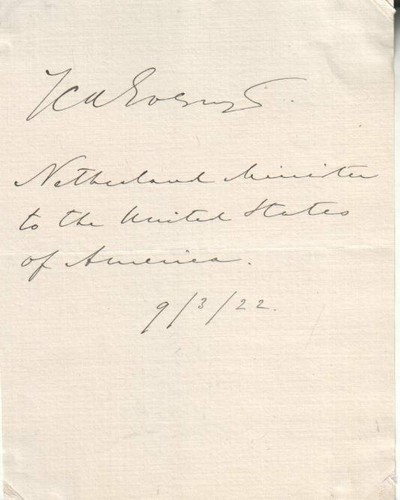 Netherland Minister
to the United States
of America.
9/3/22.